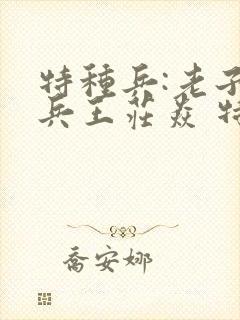 特種兵:老子
兵王莊焱 特
喬安娜